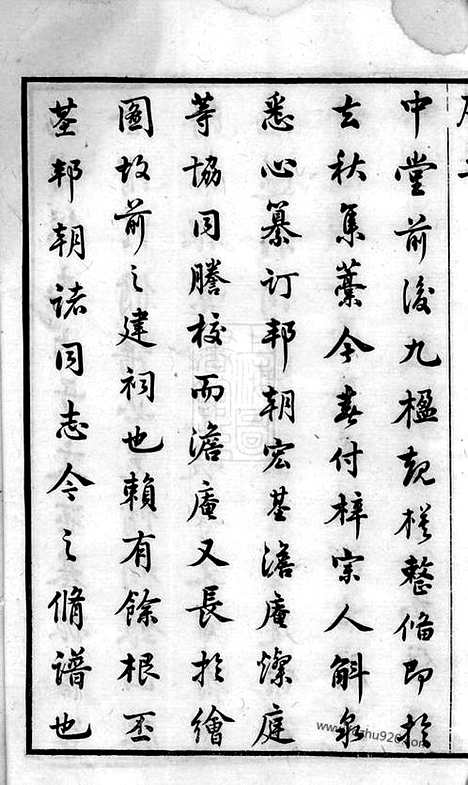 中堂前後九楹規模整脩即於
去秋集藁今春付梓宗人斛泉
悉心纂订邦朝宏基澹庵燦庭
等協同謄校而澹庵又長於繪
圖故前之建祠也賴有餘根丕
基邦朝诸同志今之脩譜也
www.shu926.com